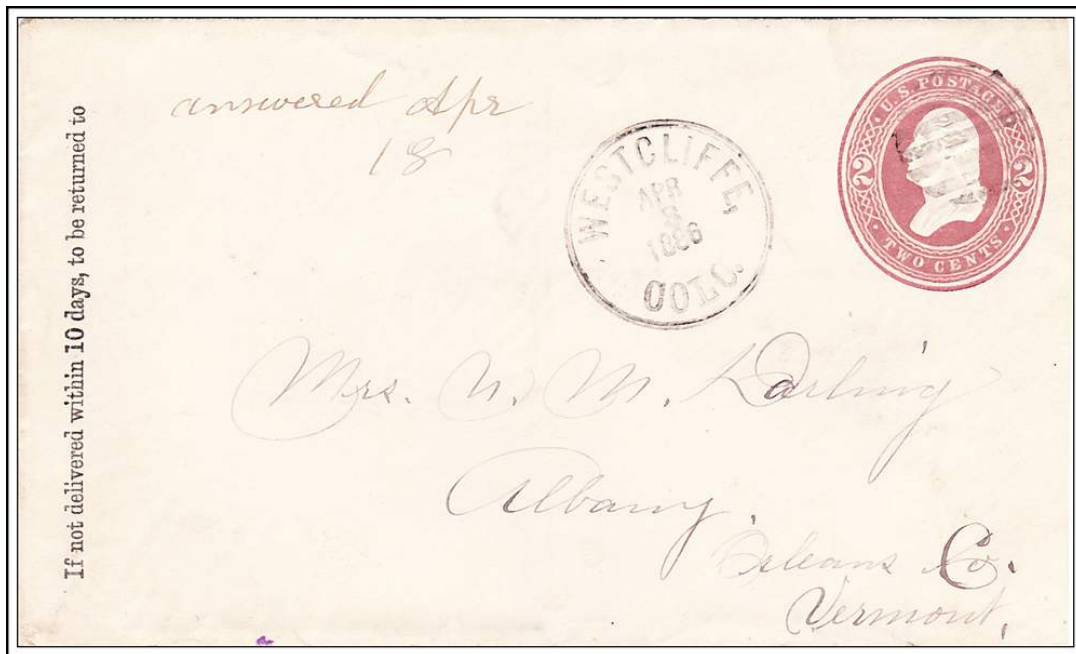 If not delivered within 10 days, to be returned to
answered Apr
18
WESTCLIFFE,
APR
8
1886
COLO.
U.S. POSTAGE
2 2
TWO CENTS
Mrs. N. M. Darling
Albany,
Orleans Co.
Vermont,